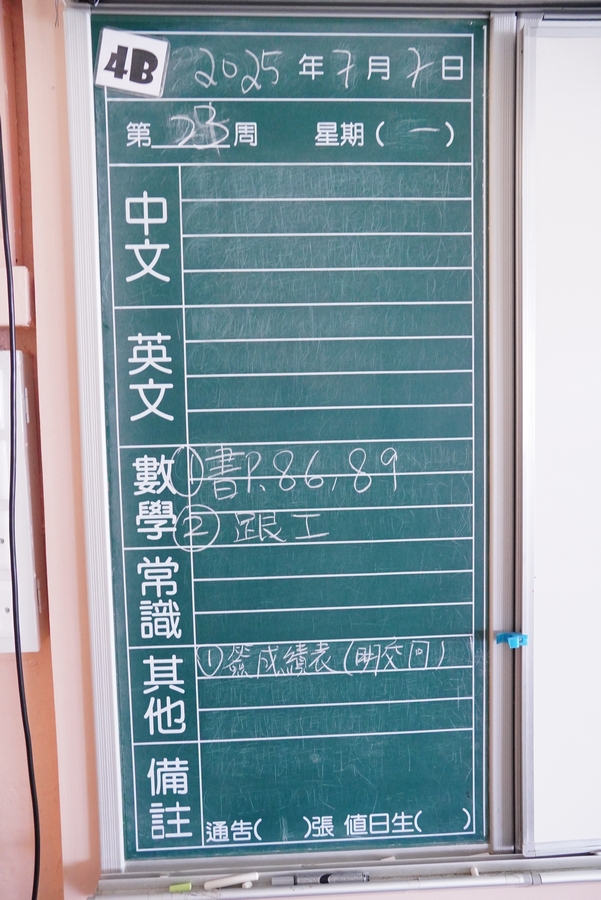 4B 2025年7月7日
第 23 周 星期(一)
中文
英文
數學 ①書P.86,89
②跟工
常識
其他 ①簽成績表(明交回)
備註
通告( )張 值日生( )